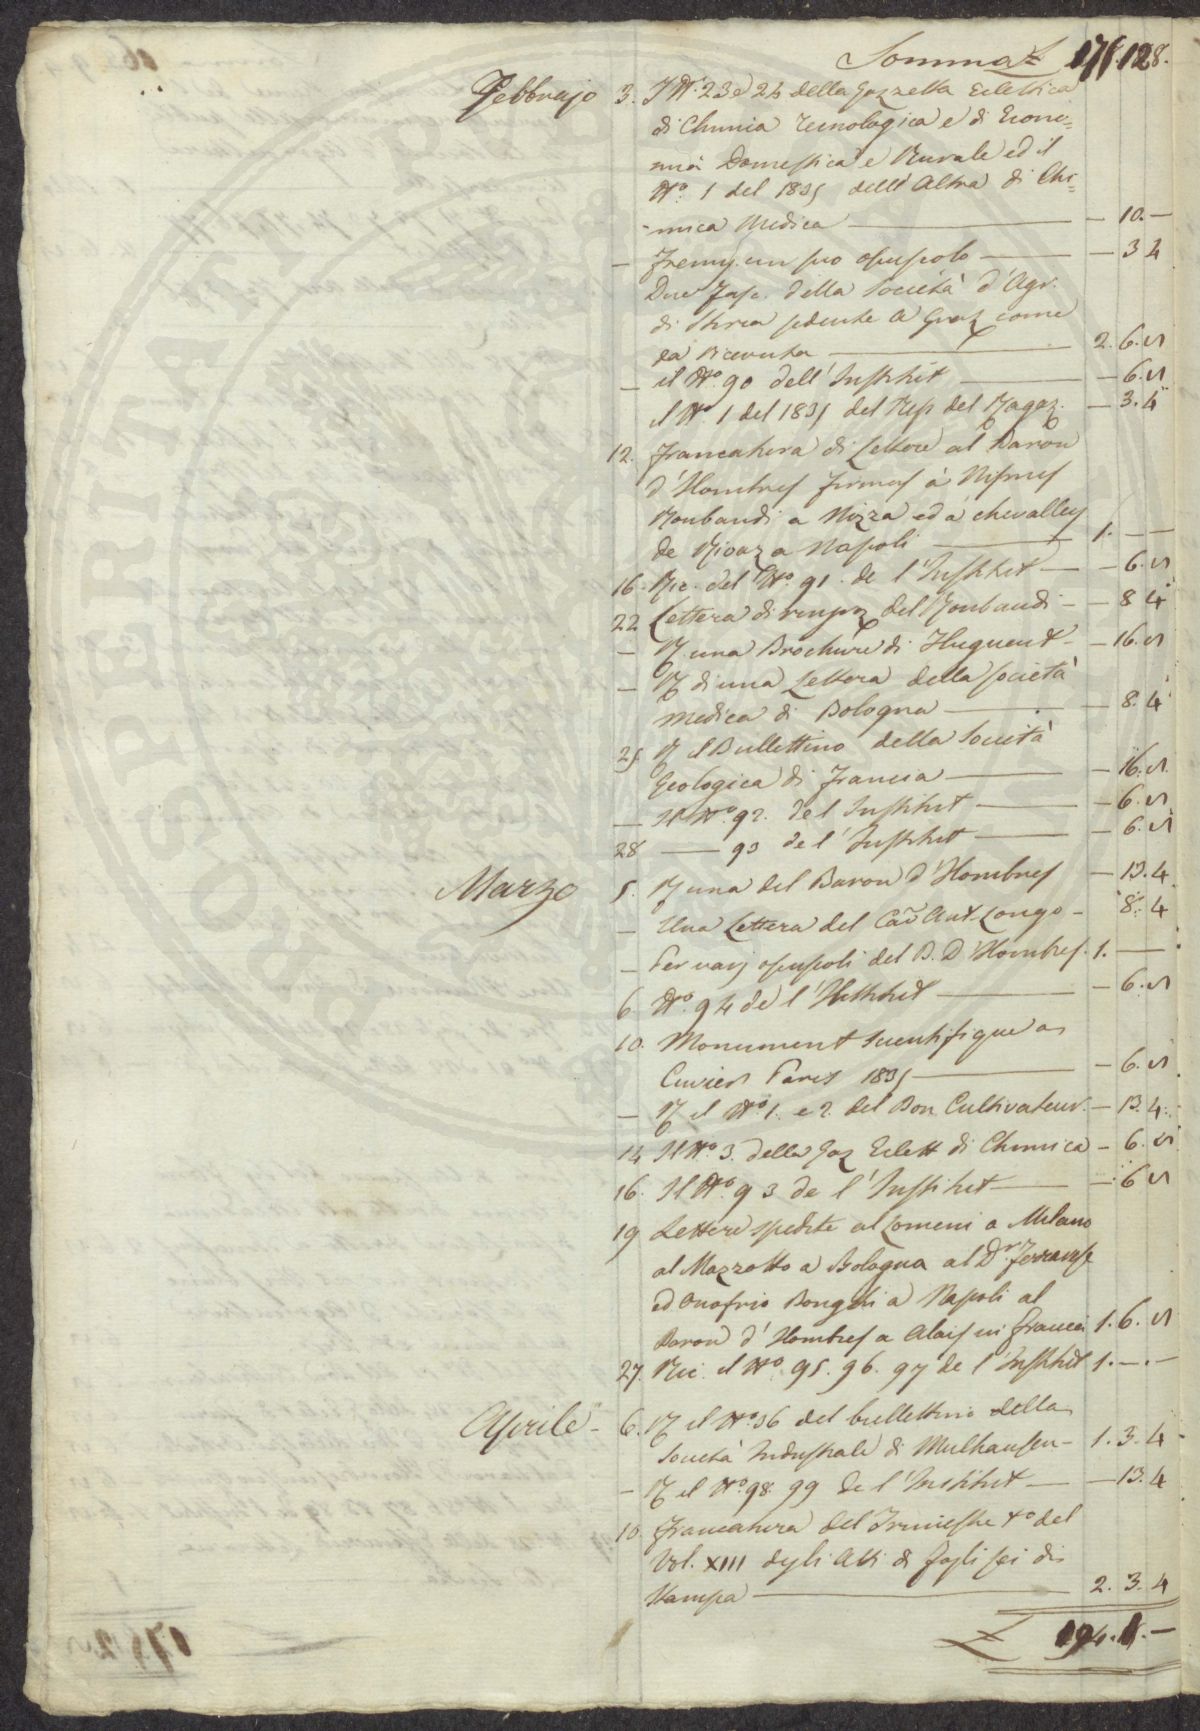 Somma £ 175.12 8.
Febbrajo 3. I N.i 23 e 24 della Gazzetta Eclettica
di Chimia Tecnologica e di Econo=
mia Domestica e Rurale ed il
N.o 1 del 1835 dell'Altra di Chi=
mica Medica — 10. —
— Fremy un suo opuscolo — 3 4
Due Fasc. della Società d'Agr.
di Stiria sedente a Graz come
da Ricevuta — 2. 6. 8
— il N.o 90 dell'Institut — 6. 8
il N.o 1 del 1835 del Rep del Ragaz. — 3. 4
12. Francatura di Lettere al Baron
d'Hombres Firmas à Nismes
Roubaudi a Nizza ed a Chevalley
de Rivaz a Napoli — 1. —
16. Ric. del N.o 91. de l'Institut — 6. 8
22 Lettera di del Roubaudi — 8 4
— R una Brochure di Huguent — 16. 8
— R di una Lettera della Società
Medica di Bologna — 8. 4
25 R il Bullettino della Società
Geologica di Francia — 16. 8.
— Il N.o 92. del Institut — 6. 8
28 — 93 de l'Institut — 6. 8
Marzo 5. R una del Baron d'Hombres — 13. 4.
— Una Lettera del Cav Ant. Longo — 8. 4
— Per varj opuscoli del B. D'Hombres. 1. —
6 N.o 94 de l'Institut — 6. 8
10. Monument Scientifique a
Cuvier Paris 1835 — 6. 8
— R il N.o 1. e 2. del Bon Cultivateur. — 13. 4.
14 Il N.o 3. della Gaz Eclett di Chimica — 6. 8
16. Il N.o 93 de l'Institut — 6 8
19 Lettere spedite al Lomeni a Milano
al Mazzotto a Bologna al D.r
ed Onofrio Bonghi a Napoli al
Baron d'Hombres a Alais in Francia 1. 6. 8
27. Ric. il N.o 95. 96. 97 de l'Institut 1. — . —
Aprile — 6. R il N.o 36 del bullettino della
Società Industriale di Mulhausen — 1. 3. 4
— R il N.o 98. 99 de l'Institut — 13. 4
10. Francatura del Trimestre del
Vol. XIII degli Atti di Fogli sei di
Stampa — 2. 3. 4
£ 194. 1. —